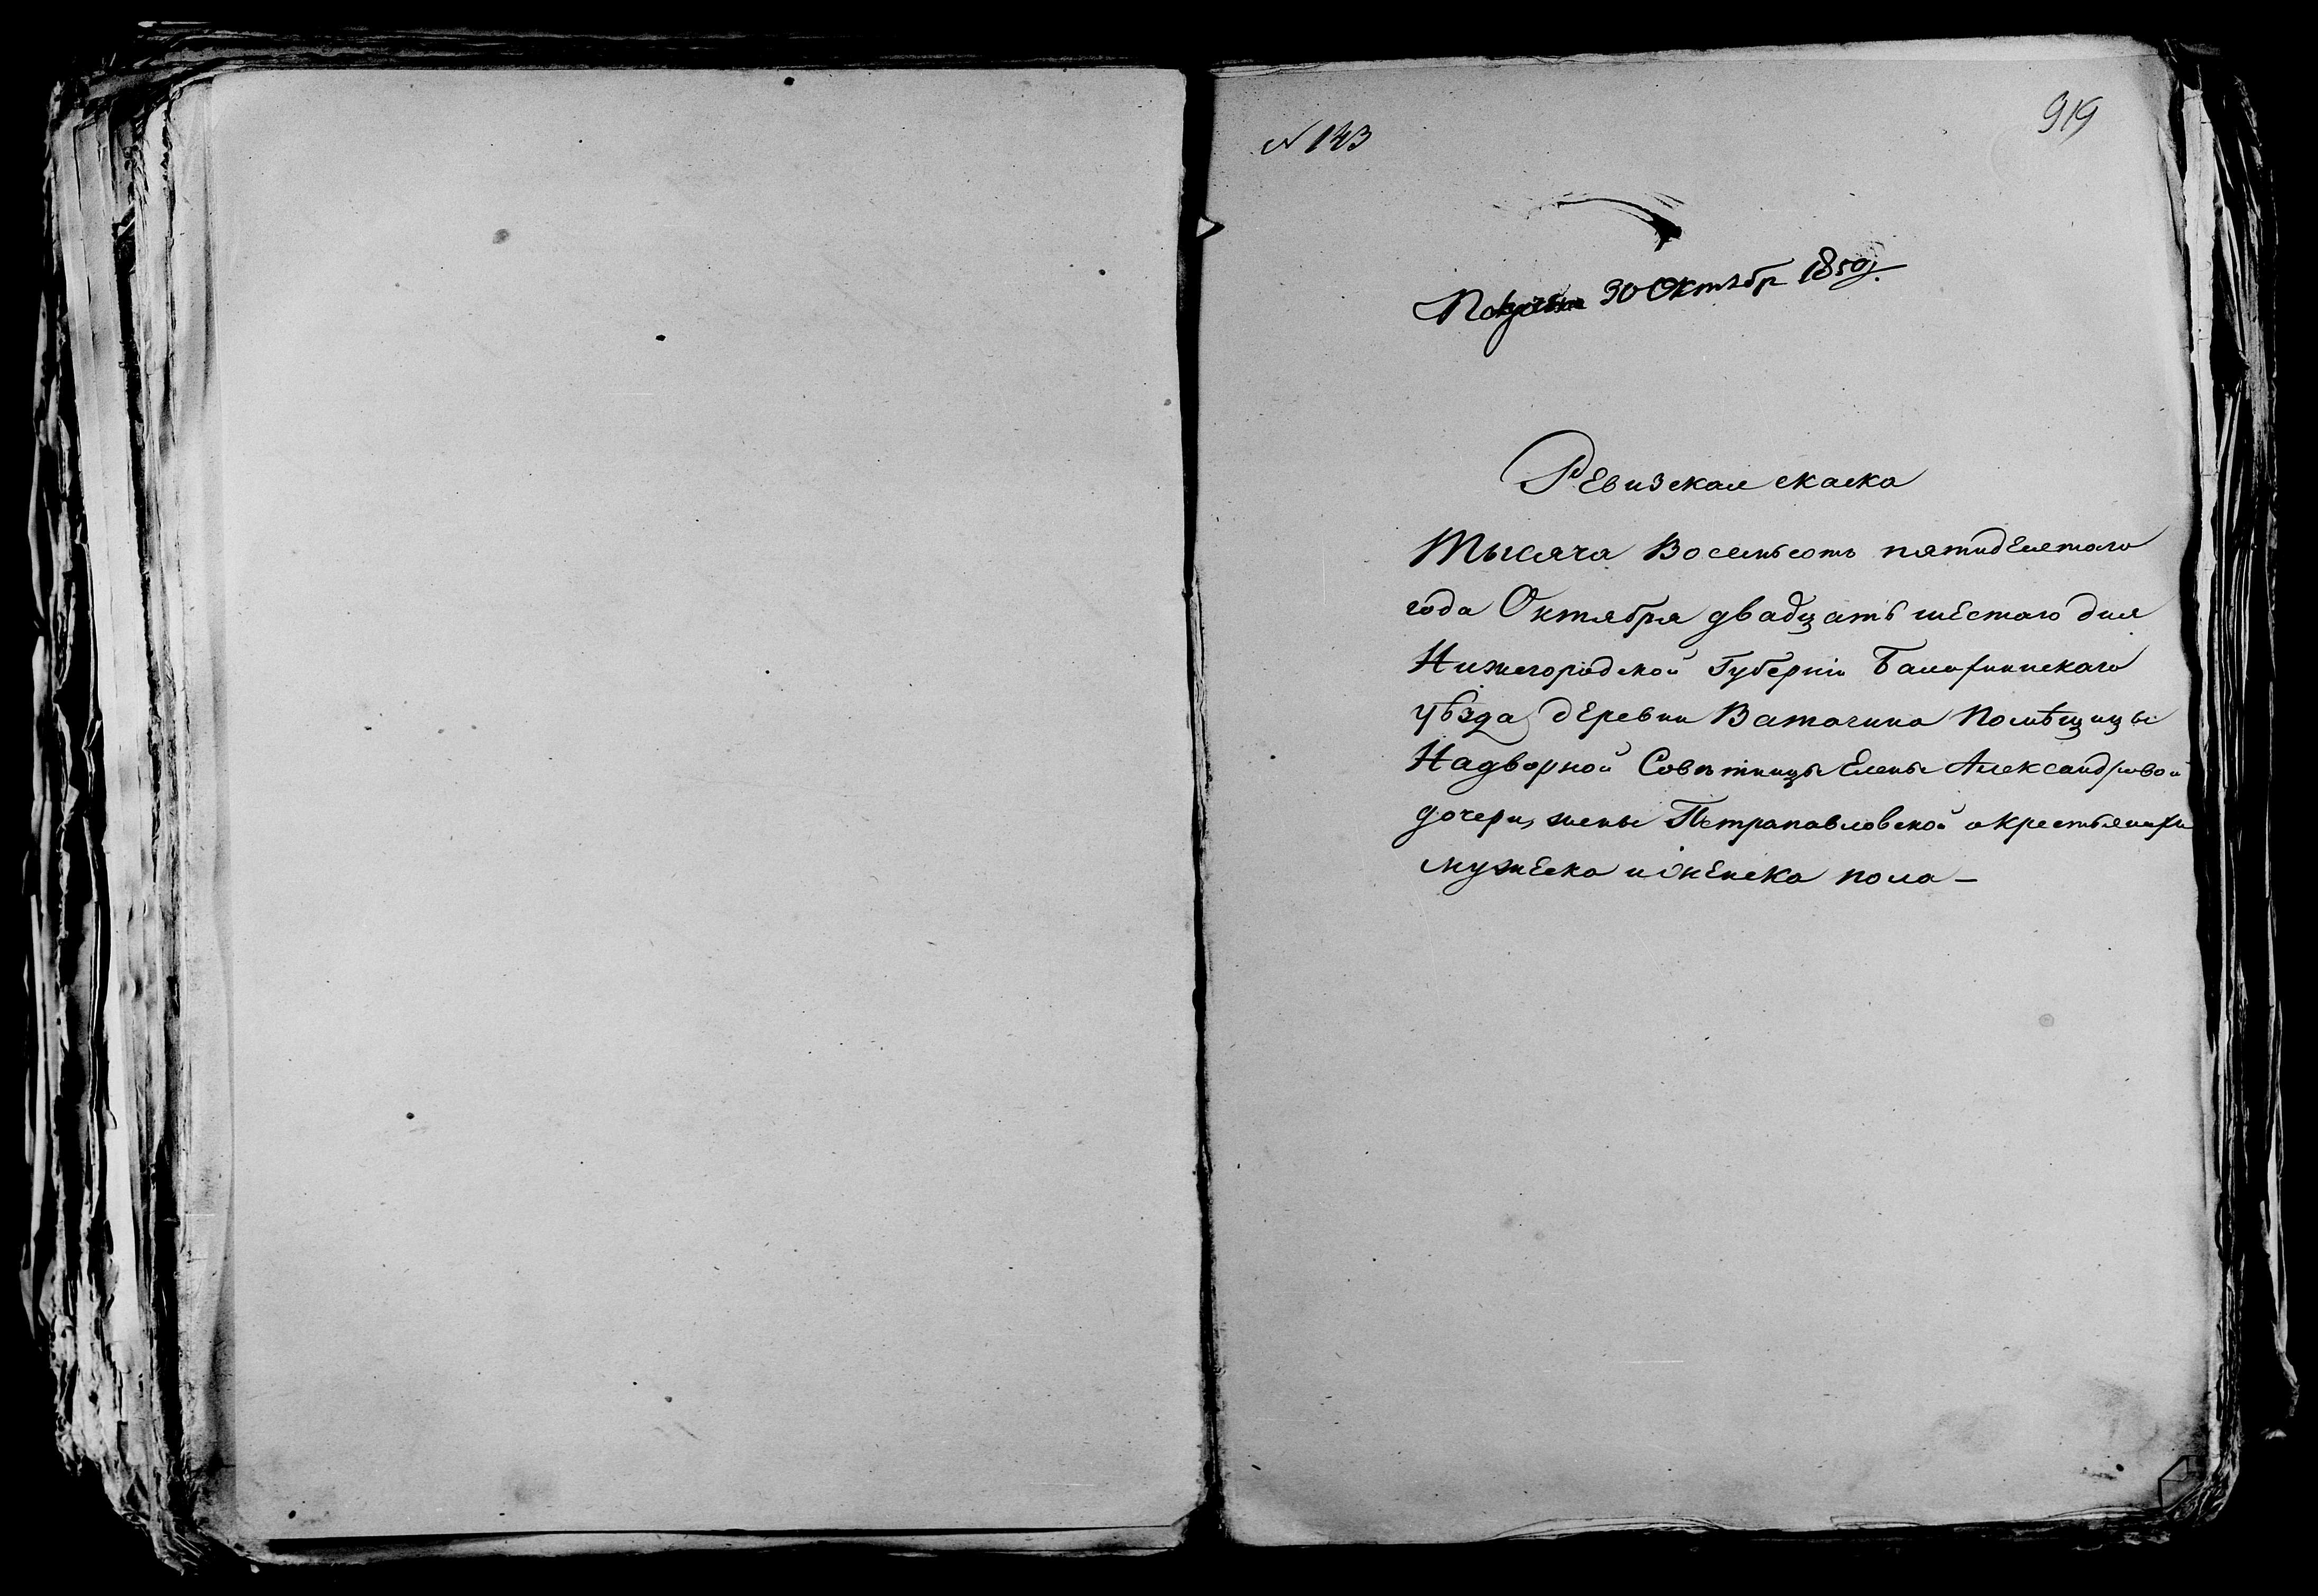 № 143
919
30 Октябр 1850 г.
Ревизская скаска
Тысяча Восемьсотъ пятидесятаго
года Октября двадцать шестаго дня
Нижегородской Губерніи Балахнинскаго
уѣзда деревни Ватагина Помѣщицы
Надворной Совѣтницы Елены Александровой
дочери, жены Петрапавловской окрестьянахъ
мужеска иженска пола —